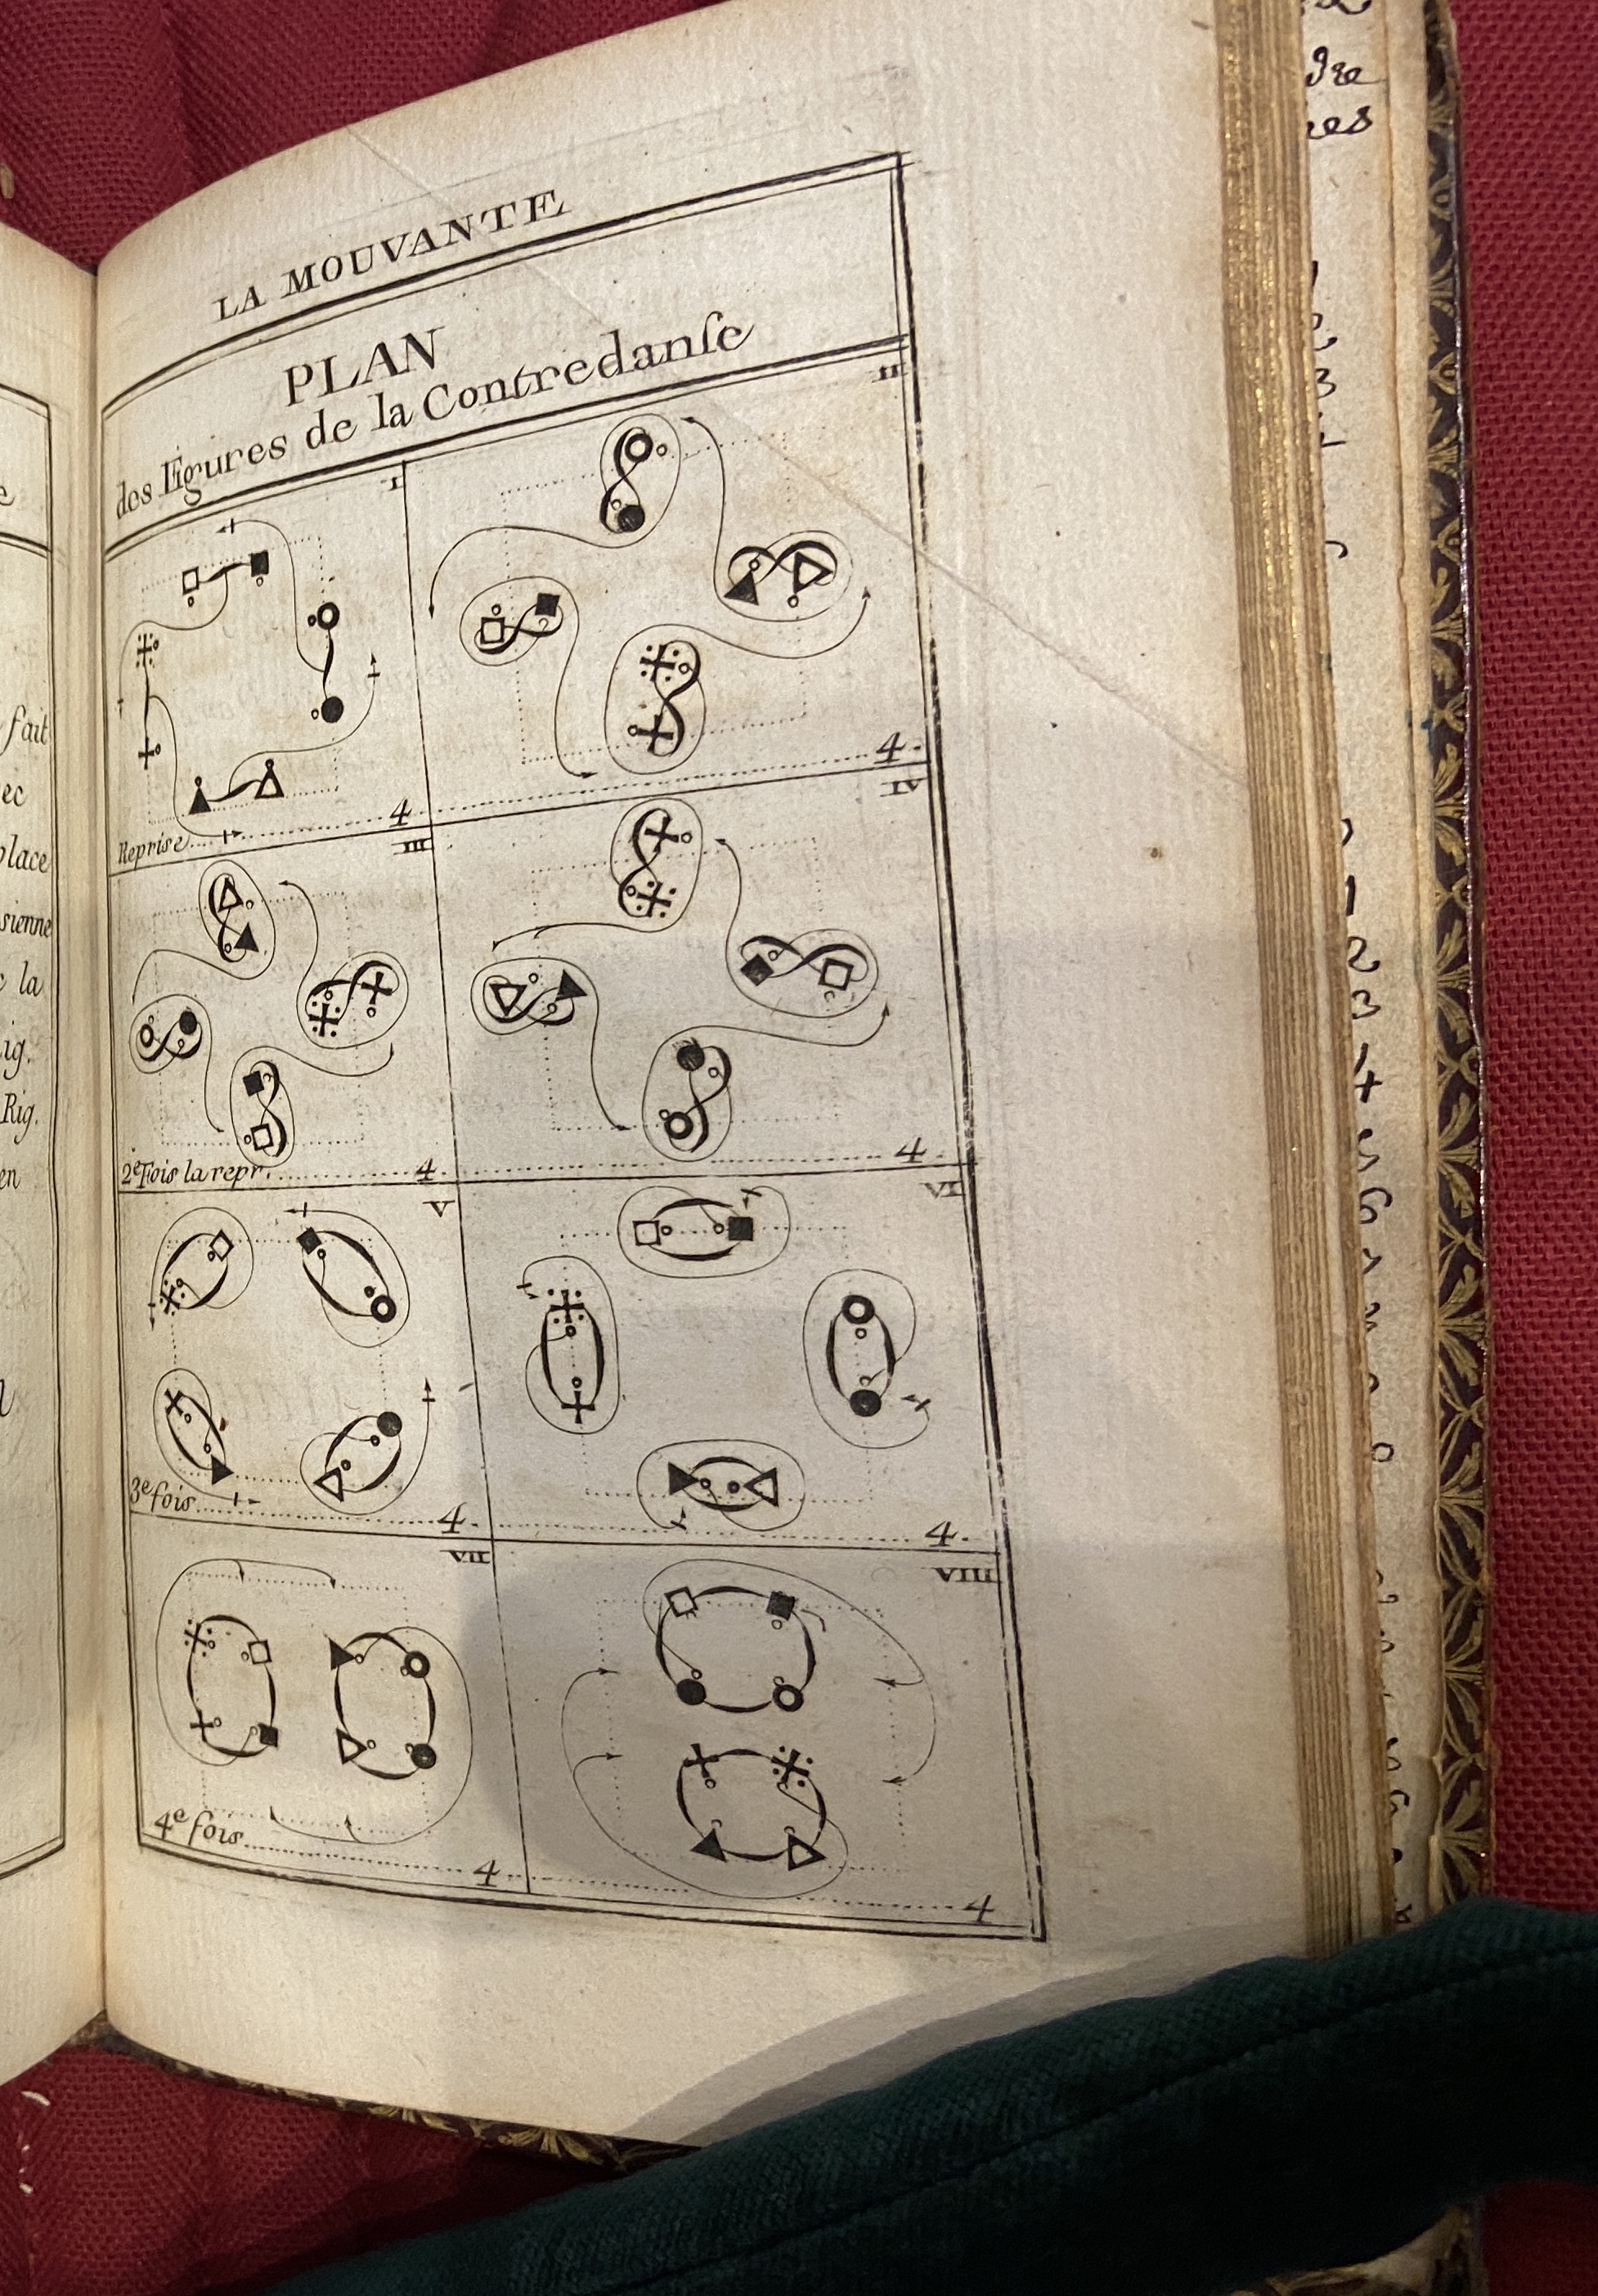 fait
ec
place
sienne
la
ig.
Rig.
en
LA MOUVANTE
PLAN
des Figures de la Contredanſe
I
II
Reprise
4
4.
III
IV
2e Fois la repr.
4
4
V
VI
3e fois
4
4.
VII
VIII
4e fois
4
4
dre
res
3
1
2
3
4
6